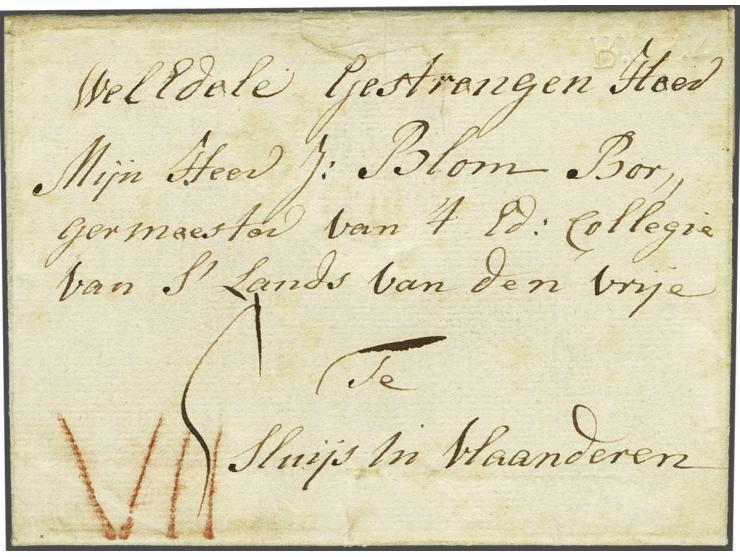 WelEdele Gestrangen Heer
Mijn Heer J: Blom Bor„
germeester van 't Ed: Collegie
van S' Lands van den vrije
Te
Sluijs in Vlaanderen
VII